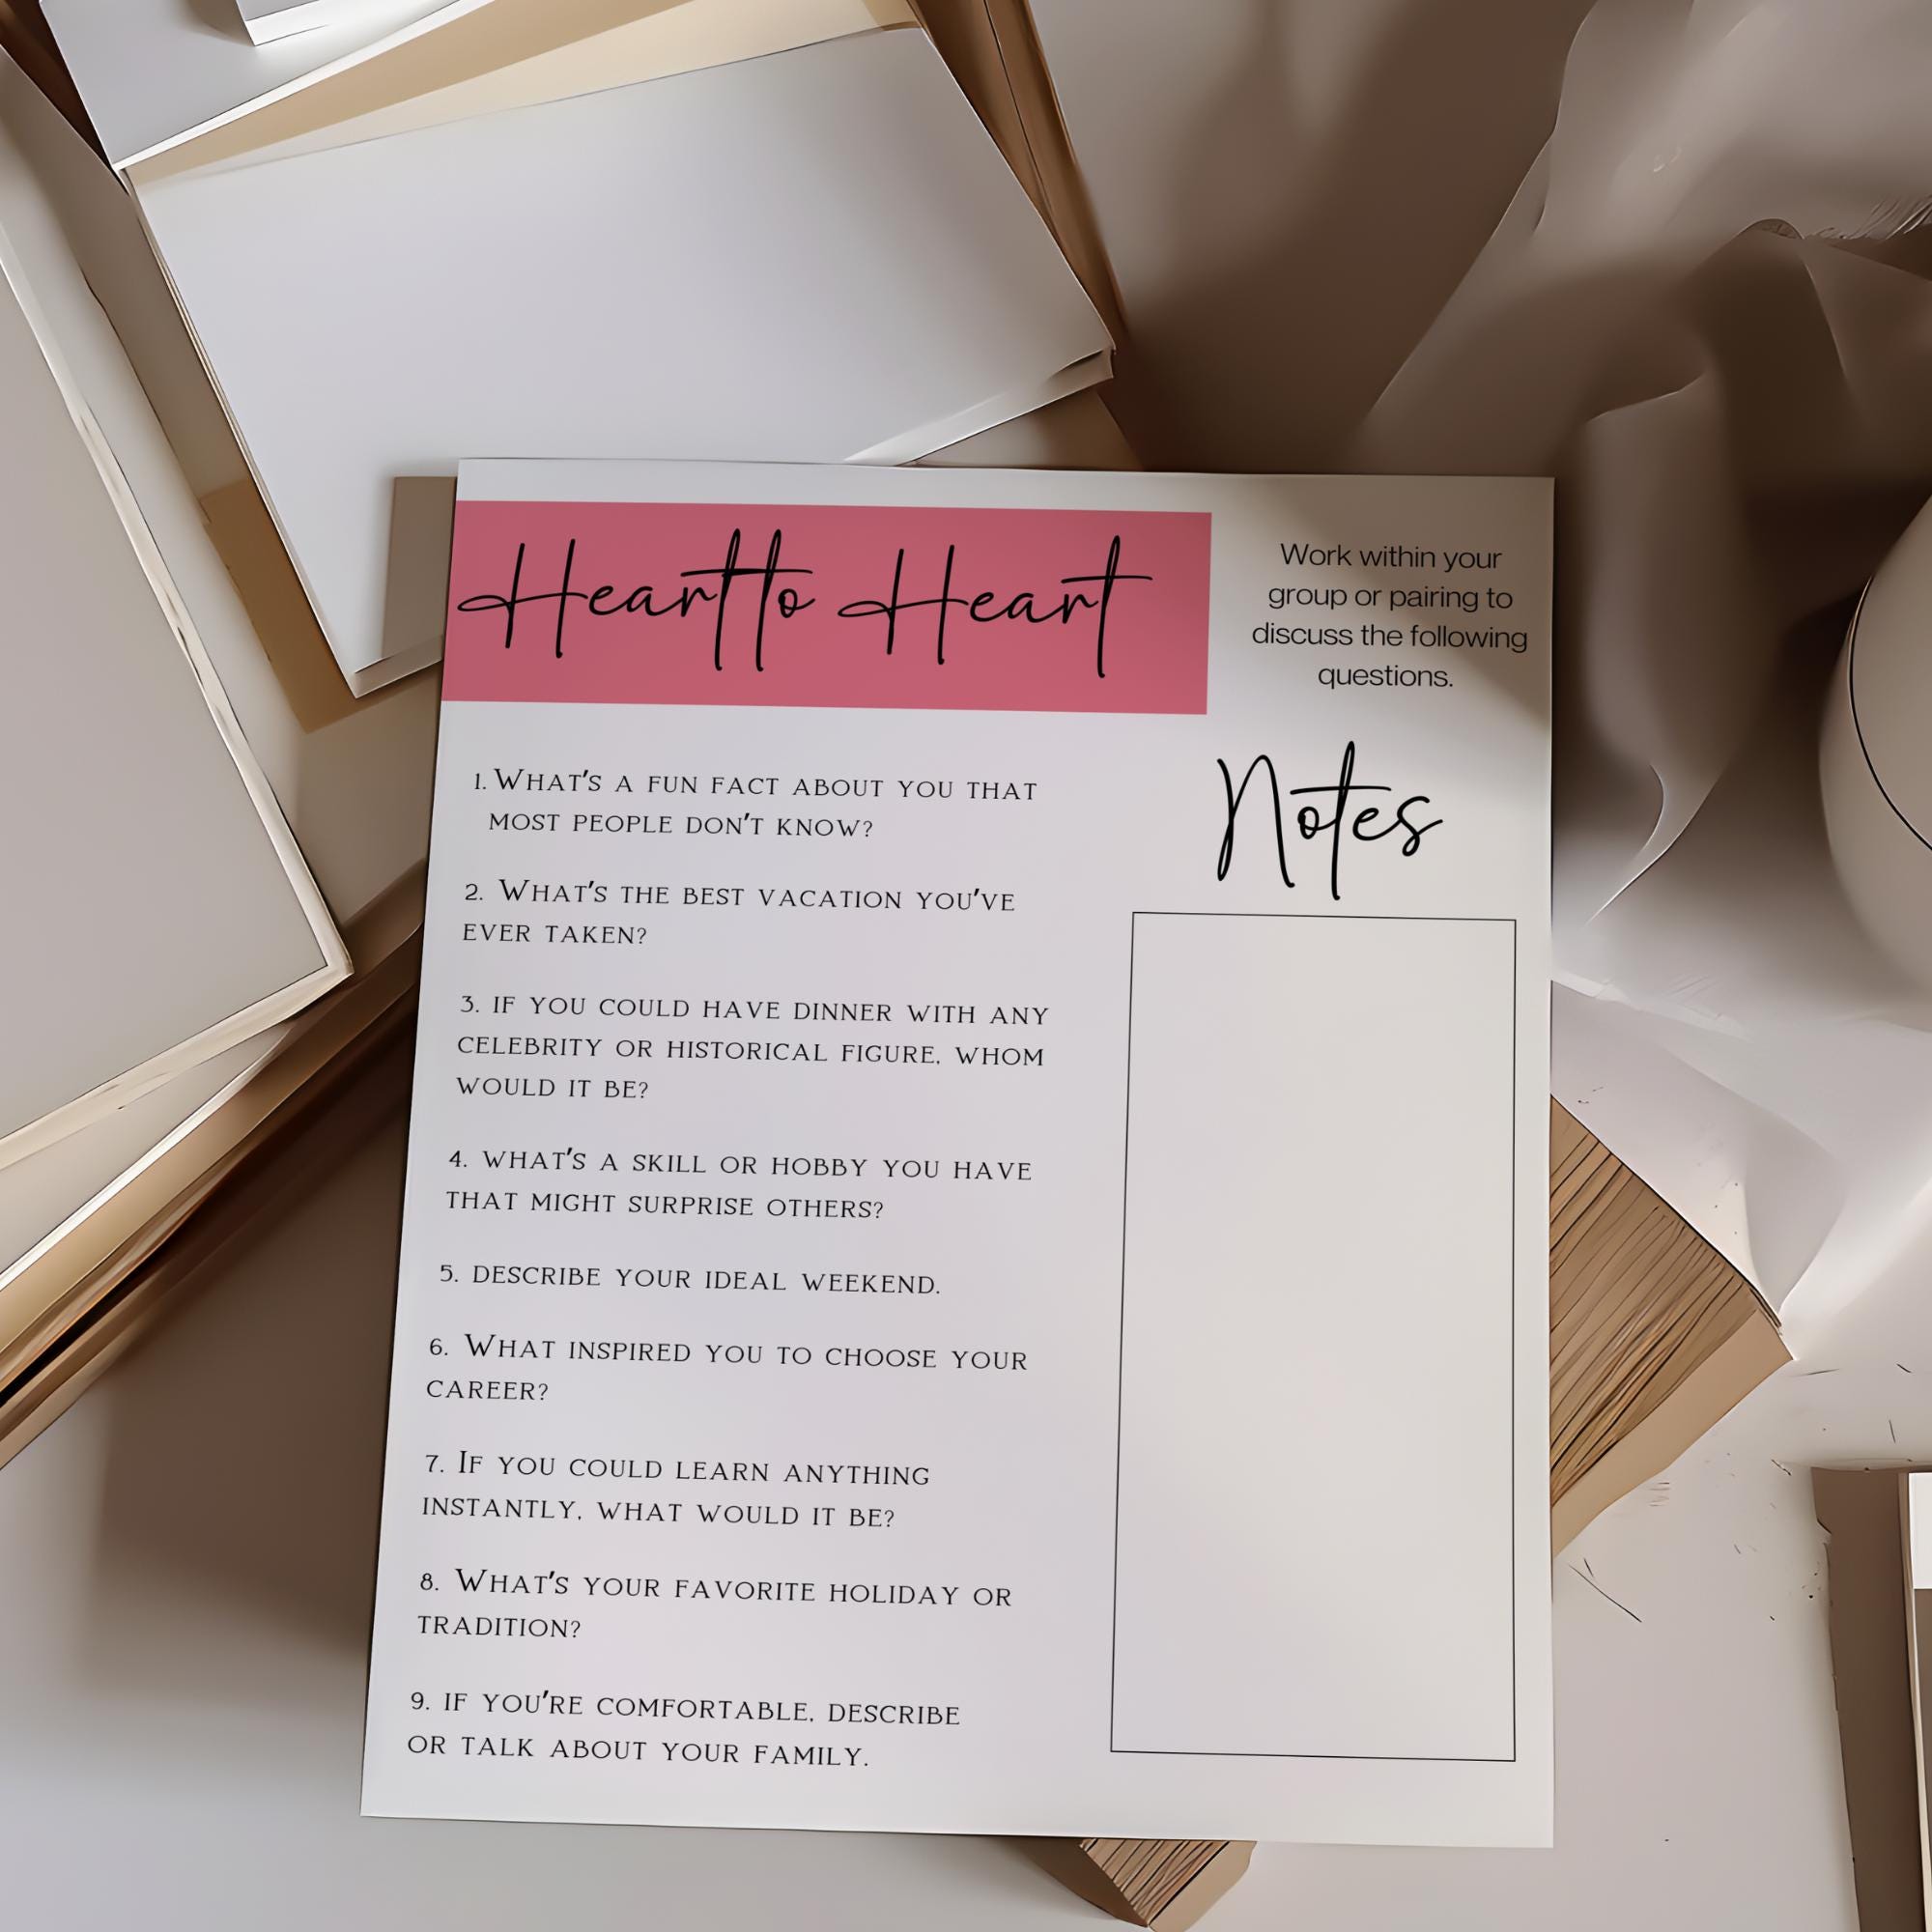 Heart to Heart
Work within your
group or pairing to
discuss the following
questions.
1. What's a fun fact about you that
most people don't know?
2. What's the best vacation you've
ever taken?
3. if you could have dinner with any
celebrity or historical figure, whom
would it be?
4. what's a skill or hobby you have
that might surprise others?
5. describe your ideal weekend.
6. What inspired you to choose your
career?
7. If you could learn anything
instantly, what would it be?
8. What's your favorite holiday or
tradition?
9. if you're comfortable, describe
or talk about your family.
Notes